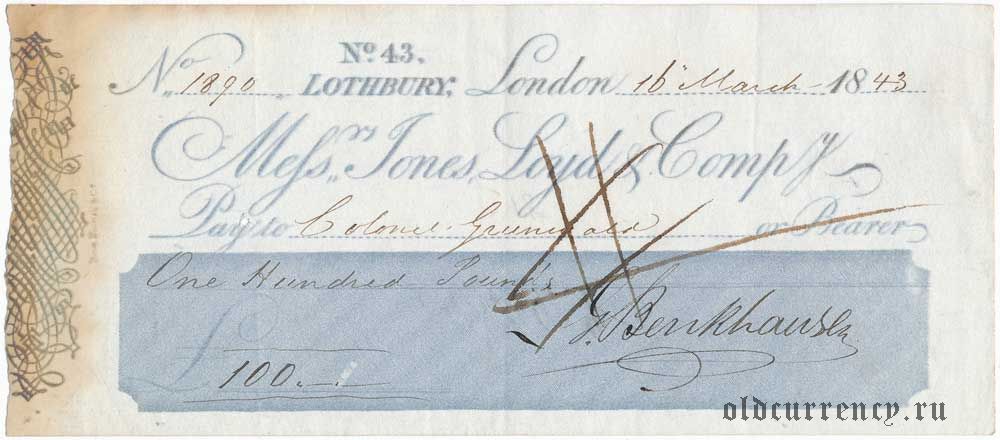 No. 43.
No. 1890 LOTHBURY, London 16 March 1843
Messrs. Jones, Loyd & Compy
Pay to Colonel or Bearer
One Hundred Pounds
£ 100.-.-
Benkhausen
oldcurrency.ru